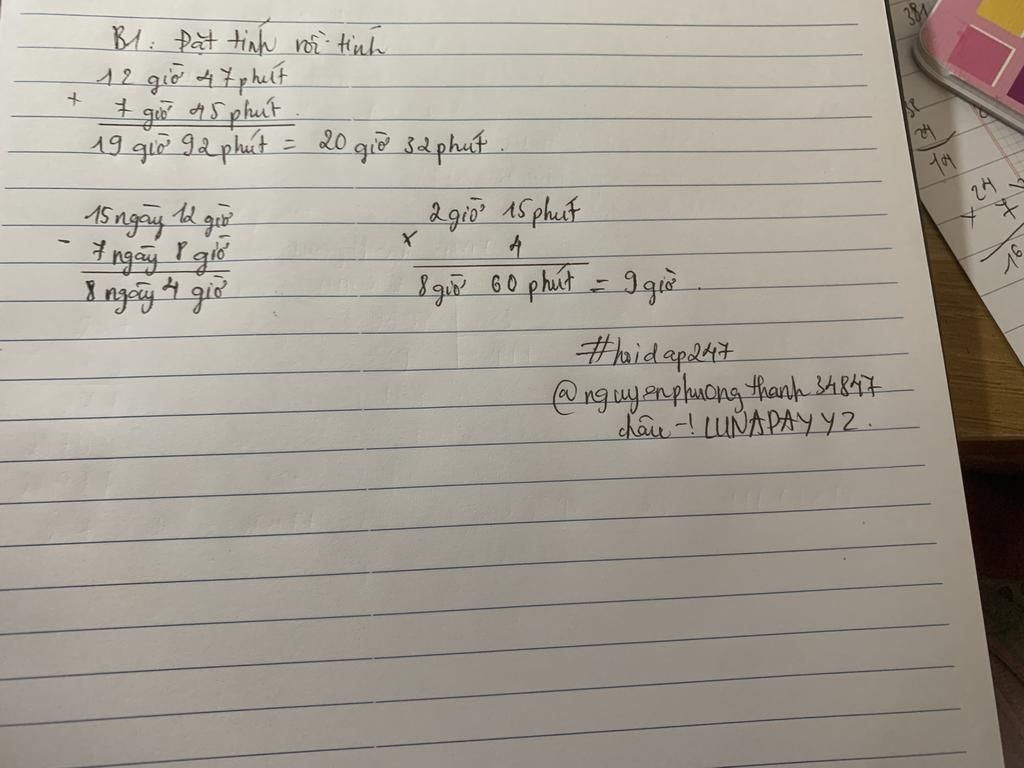 B1: Đặt tính rồi tính
12 giờ 47 phút
+
7 giờ 45 phút
19 giờ 92 phút = 20 giờ 32 phút.
15 ngày 12 giờ
-
7 ngày 8 giờ
8 ngày 4 giờ
2 giờ 15 phút
x
4
8 giờ 60 phút = 9 giờ.
#hoidap247
@nguyenphuongthanh34847
LUNAPAYYZ.
381
24
14
24
x 7
16